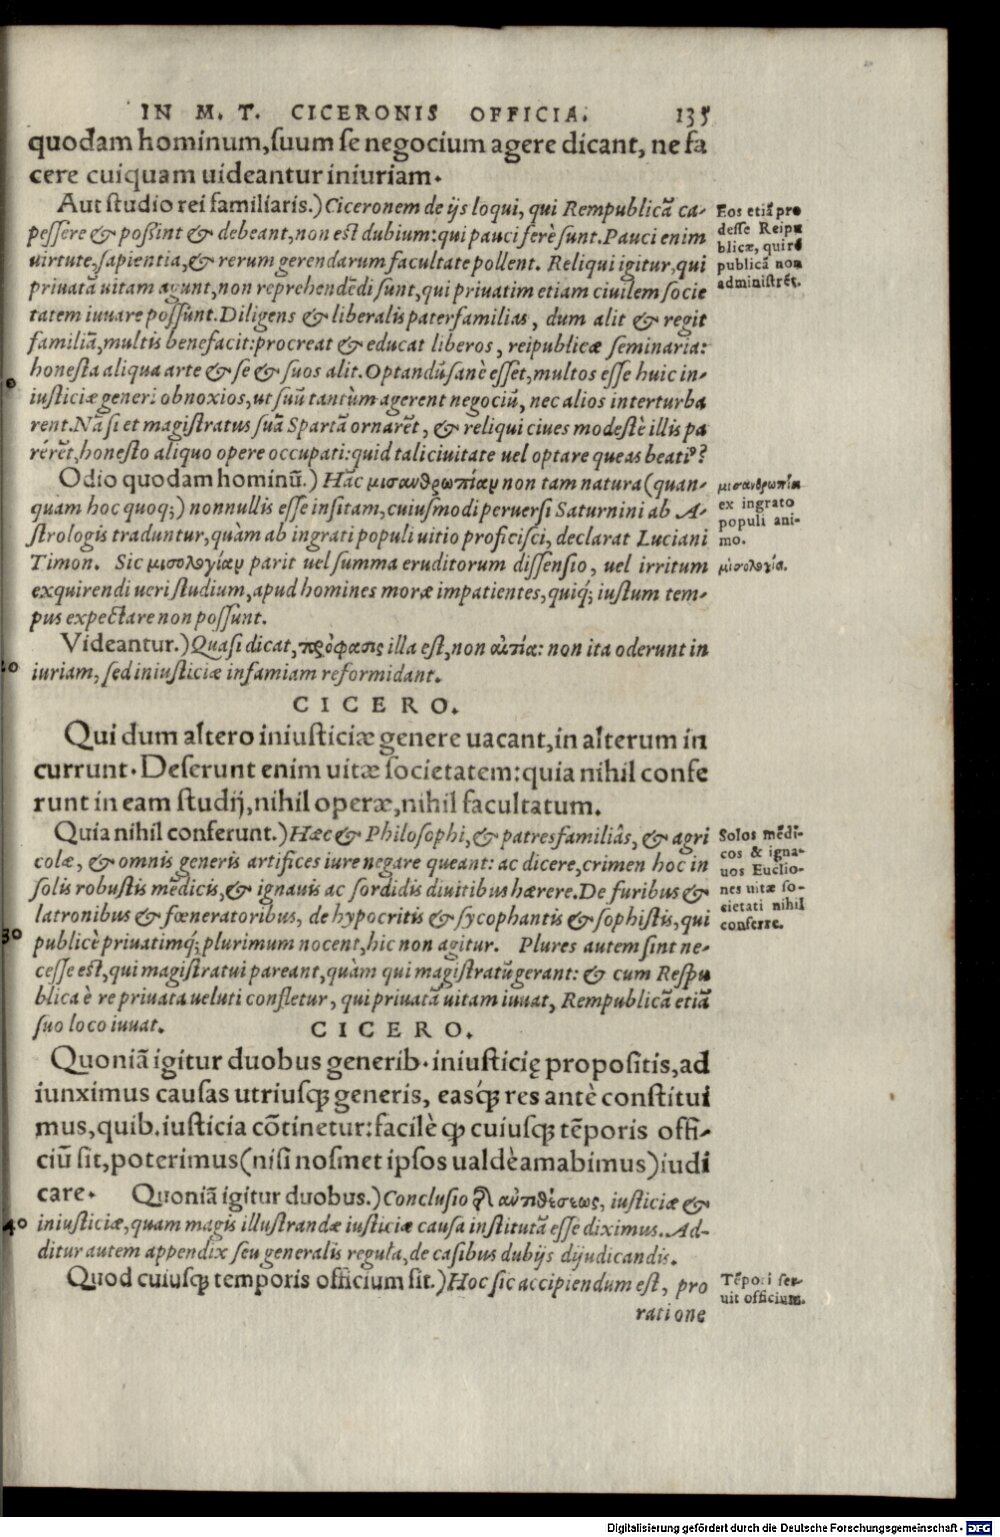 IN M. T. CICERONIS OFFICIA. 135
quodam hominum, suum se negocium agere dicant, ne fa
cere cuiquam uideantur iniuriam.
Aut studio rei familiaris.) Ciceronem de ijs loqui, qui Rempublicã ca-
pessere & possint & debeant, non est dubium: qui pauci ferè sunt. Pauci enim
uirtute, sapientia, & rerum gerendarum facultate pollent. Reliqui igitur, qui
priuatã uitam agunt, non reprehendẽdi sunt, qui priuatim etiam ciuilem socie
tatem iuuare possunt. Diligens & liberalis paterfamilias, dum alit & regit
familiã, multis benefacit: procreat & educat liberos, reipublicæ seminaria:
honesta aliqua arte & se & suos alit. Optandũ sanè esset, multos esse huic in-
iusticiæ generi obnoxios, ut suũ tantùm agerent negociũ, nec alios interturba
rent. Nã si et magistratus suã Spartã ornarẽt, & reliqui ciues modestè illis pa
rérẽt, honesto aliquo opere occupati: quid tali ciuitate uel optare queas beatiꝰ?
Eos etiã pro
desse Reipu
blicæ, qui rẽ
publicã non
administrẽt.
Odio quodam hominũ.) Hãc μισανθρωπίαν non tam natura (quan-
quam hoc quoq;) nonnullis esse insitam, cuiusmodi peruersi Saturnini ab A-
strologis traduntur, quàm ab ingrati populi uitio proficisci, declarat Luciani
Timon. Sic μισολογίαν parit uel summa eruditorum dissensio, uel irritum
exquirendi ueri studium, apud homines moræ impatientes, quiq́; iustum tem-
pus expectare non possunt.
μισανθρωπία
ex ingrato
populi ani-
mo.
μισολογία.
Videantur.) Quasi dicat, πρόφασις illa est, non αἰτία: non ita oderunt in
20 iuriam, sed iniusticiæ infamiam reformidant.
CICERO.
Qui dum altero iniusticiæ genere uacant, in alterum in
currunt. Deserunt enim uitæ societatem: quia nihil confe
runt in eam studij, nihil operæ, nihil facultatum.
Quia nihil conferunt.) Hæc & Philosophi, & patresfamiliâs, & agri
colæ, & omnis generis artifices iure negare queant: ac dicere, crimen hoc in
solis robustis mẽdicis, & ignauis ac sordidis diuitibus hærere. De furibus &
latronibus & fœneratoribus, de hypocritis & sycophantis & sophistis, qui
30 publicè priuatimq́; plurimum nocent, hic non agitur. Plures autem sint ne-
cesse est, qui magistratui pareant, quàm qui magistratũ gerant: & cum Respu
blica è re priuata ueluti confletur, qui priuatã uitam iuuat, Rempublicã etiã
suo loco iuuat.
Solos mẽdi-
cos & igna-
uos Euclio-
nes uitæ so-
cietati nihil
conferre.
CICERO.
Quoniã igitur duobus generib. iniusticię propositis, ad
iunximus causas utriusq; generis, easq́; res antè constitui
mus, quib. iusticia cõtinetur: facilè q̃ cuiusq; tẽporis offi-
ciũ sit, poterimus (nisi nosmet ipsos ualdè amabimus) iudi
care. Quoniã igitur duobus.) Conclusio ἀντιθέσεως, iusticiæ &
40 iniusticiæ, quam magis illustrandæ iusticiæ causa institutã esse diximus. Ad-
ditur autem appendix seu generalis regula, de casibus dubijs dijudicandis.
Quod cuiusq; temporis officium sit.) Hoc sic accipiendum est, pro
ratione
Tẽpori ser-
uit officium.
Digitalisierung gefördert durch die Deutsche Forschungsgemeinschaft - DFG